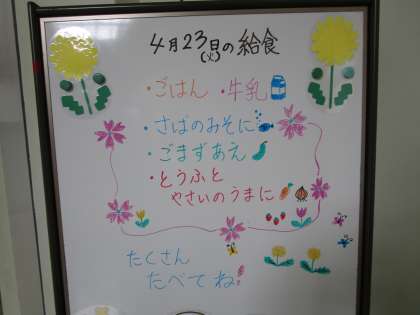 4月23日(火)の給食
・ごはん ・牛乳
・さばのみそに
・ごまずあえ
・とうふと
やさいのうまに
たくさん
たべてね